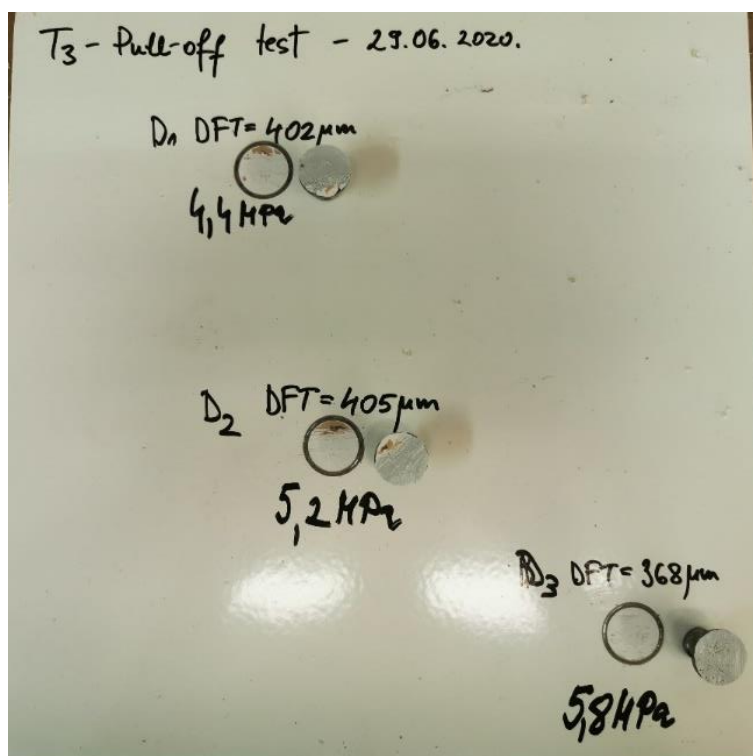 T3 - Pull-off test - 29.06.2020.
D1 DFT = 402 μm
4,4 MPa
D2 DFT = 405 μm
5,2 MPa
D3 DFT = 368 μm
5,8 MPa